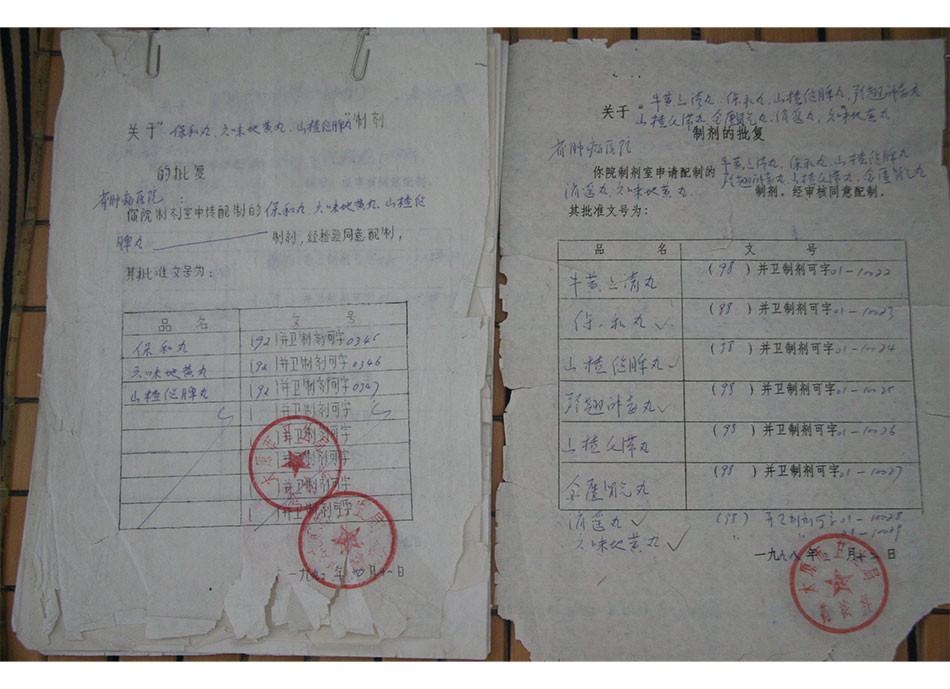 关于"保和丸、六味地黄丸、山楂健脾丸"制剂
的批复
省肿瘤医院：
你院制剂室申请配制的保和丸、六味地黄丸、山楂健
脾丸 制剂，经检验同意配制，
其批准文号为：
品 名 文 号
保和丸 (92)并卫制剂可字0345
六味地黄丸 (92)并卫制剂可字0346
山楂健脾丸 (92)并卫制剂可字0347
( )并卫制剂可字
( )并卫制剂可字
( )并卫制剂可字
( )并卫制剂可字
( )并卫制剂可字
一九九二年四月十一日
关于"牛黄上清丸、保和丸、山楂健脾丸、
"制剂的批复
省肿瘤医院
你院制剂室申请配制的牛黄上清丸、保和丸、山楂健脾丸
逍遥丸、六味地黄丸 制剂，经审核同意配制，
其批准文号为：
品 名 文 号
牛黄上清丸 (98)并卫制剂可字01-10022
保和丸 (98)并卫制剂可字01-10023
山楂健脾丸 (98)并卫制剂可字01-10024
(98)并卫制剂可字01-10025
(98)并卫制剂可字01-10026
(98)并卫制剂可字01-10027
逍遥丸 (98)并卫制剂可字01-10028
六味地黄丸 01-10029
一九九八年 月十二日
太原市卫生局